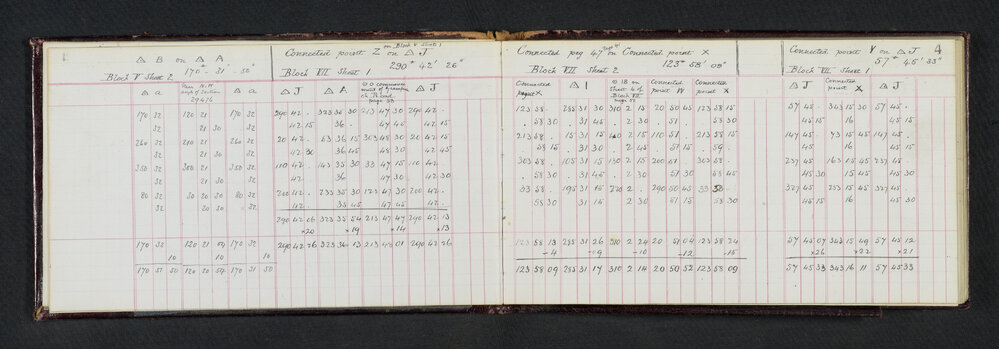 1
△ B on △ A
170 - 31' - 50"
Block V Sheet 2
△ a
Peg N.W
angle of Section
29476
△ a
170 32 120 21 170 32
32 21 30 32
260 32 210 21 260 32
32 21 30 32
350 32 300 21 350 32
32 21 30 32
80 32 30 20 30 80 32
32 20 30 32
170 32 120 21 09 170 32
10 10 10
170 31 50 120 20 59 170 31 50
on Block V Sheet 1
Connected point Z on △ J
290° 42' 26"
Block VII Sheet 1
△ J △ A △ J
page 33
290 42 . 323 36 30 213 47 30 290 42 .
42 15 36 . 47 45 42 15
20 42 . 53 36 15 303 48 30 20 42 15
42 30 36 45 48 30 42 45
110 42 . 143 35 30 33 47 15 110 42 .
42 36 47 30 42 30
200 42 . 233 35 30 123 47 30 200 42 .
42 . 35 45 47 45 42 .
290 42 06 323 35 54 213 47 47 290 42 13
+20 +19 +14 +13
290 42 26 323 36 13 213 48 01 290 42 26
Connected peg 47 on Connected point X
123° 58' 09"
Block VII Sheet 2
Connected point X
△ I
Sheet 4 of
Block VII
Connected point W
Connected point X
123 58 . 285 31 30 310 2 15 20 50 45 123 58 15
. 58 30 . 31 45 . 2 30 . 51 . . 58 30
213 58 . 15 31 15 40 2 15 110 51 . 213 58 15
. 58 15 . 31 30 . 2 45 . 51 15 . 59 .
303 58 . 105 31 15 130 2 15 200 51 . 303 58 .
. 58 30 . 31 45 . 2 30 51 30 58 45
33 58 . 195 31 15 220 2 . 290 50 45 33 58 .
58 30 . 31 15 2 30 51 15 58 30
123 58 13 285 31 26 310 2 24 20 51 04 123 58 24
-4 -09 -10 -12 -15
123 58 09 285 31 17 310 2 14 20 50 52 123 58 09
4
Connected point Y on △ J
57° 45' 33"
Block VII Sheet 1
△ J
Connected point X
△ J
57 45 . 343 15 30 57 45 .
45 15 16 45 15
147 45 . 73 15 45 147 45 .
45 16 45 15
237 45 . 163 15 45 237 45 .
45 30 15 45 45 30
327 45 253 15 45 327 45 .
45 15 16 . 45 30
57 45 07 343 15 49 57 45 12
+26 +22 +21
57 45 33 343 16 11 57 45 33